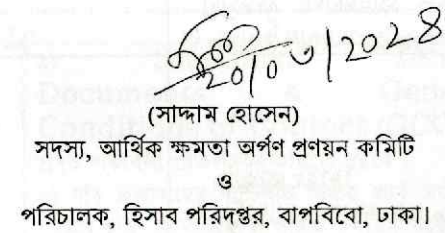 ২০/০৩/২০২৪
(সাদ্দাম হোসেন)
সদস্য, আর্থিক ক্ষমতা অর্পণ প্রণয়ন কমিটি
ও
পরিচালক, হিসাব পরিদপ্তর, বাপবিবো, ঢাকা।